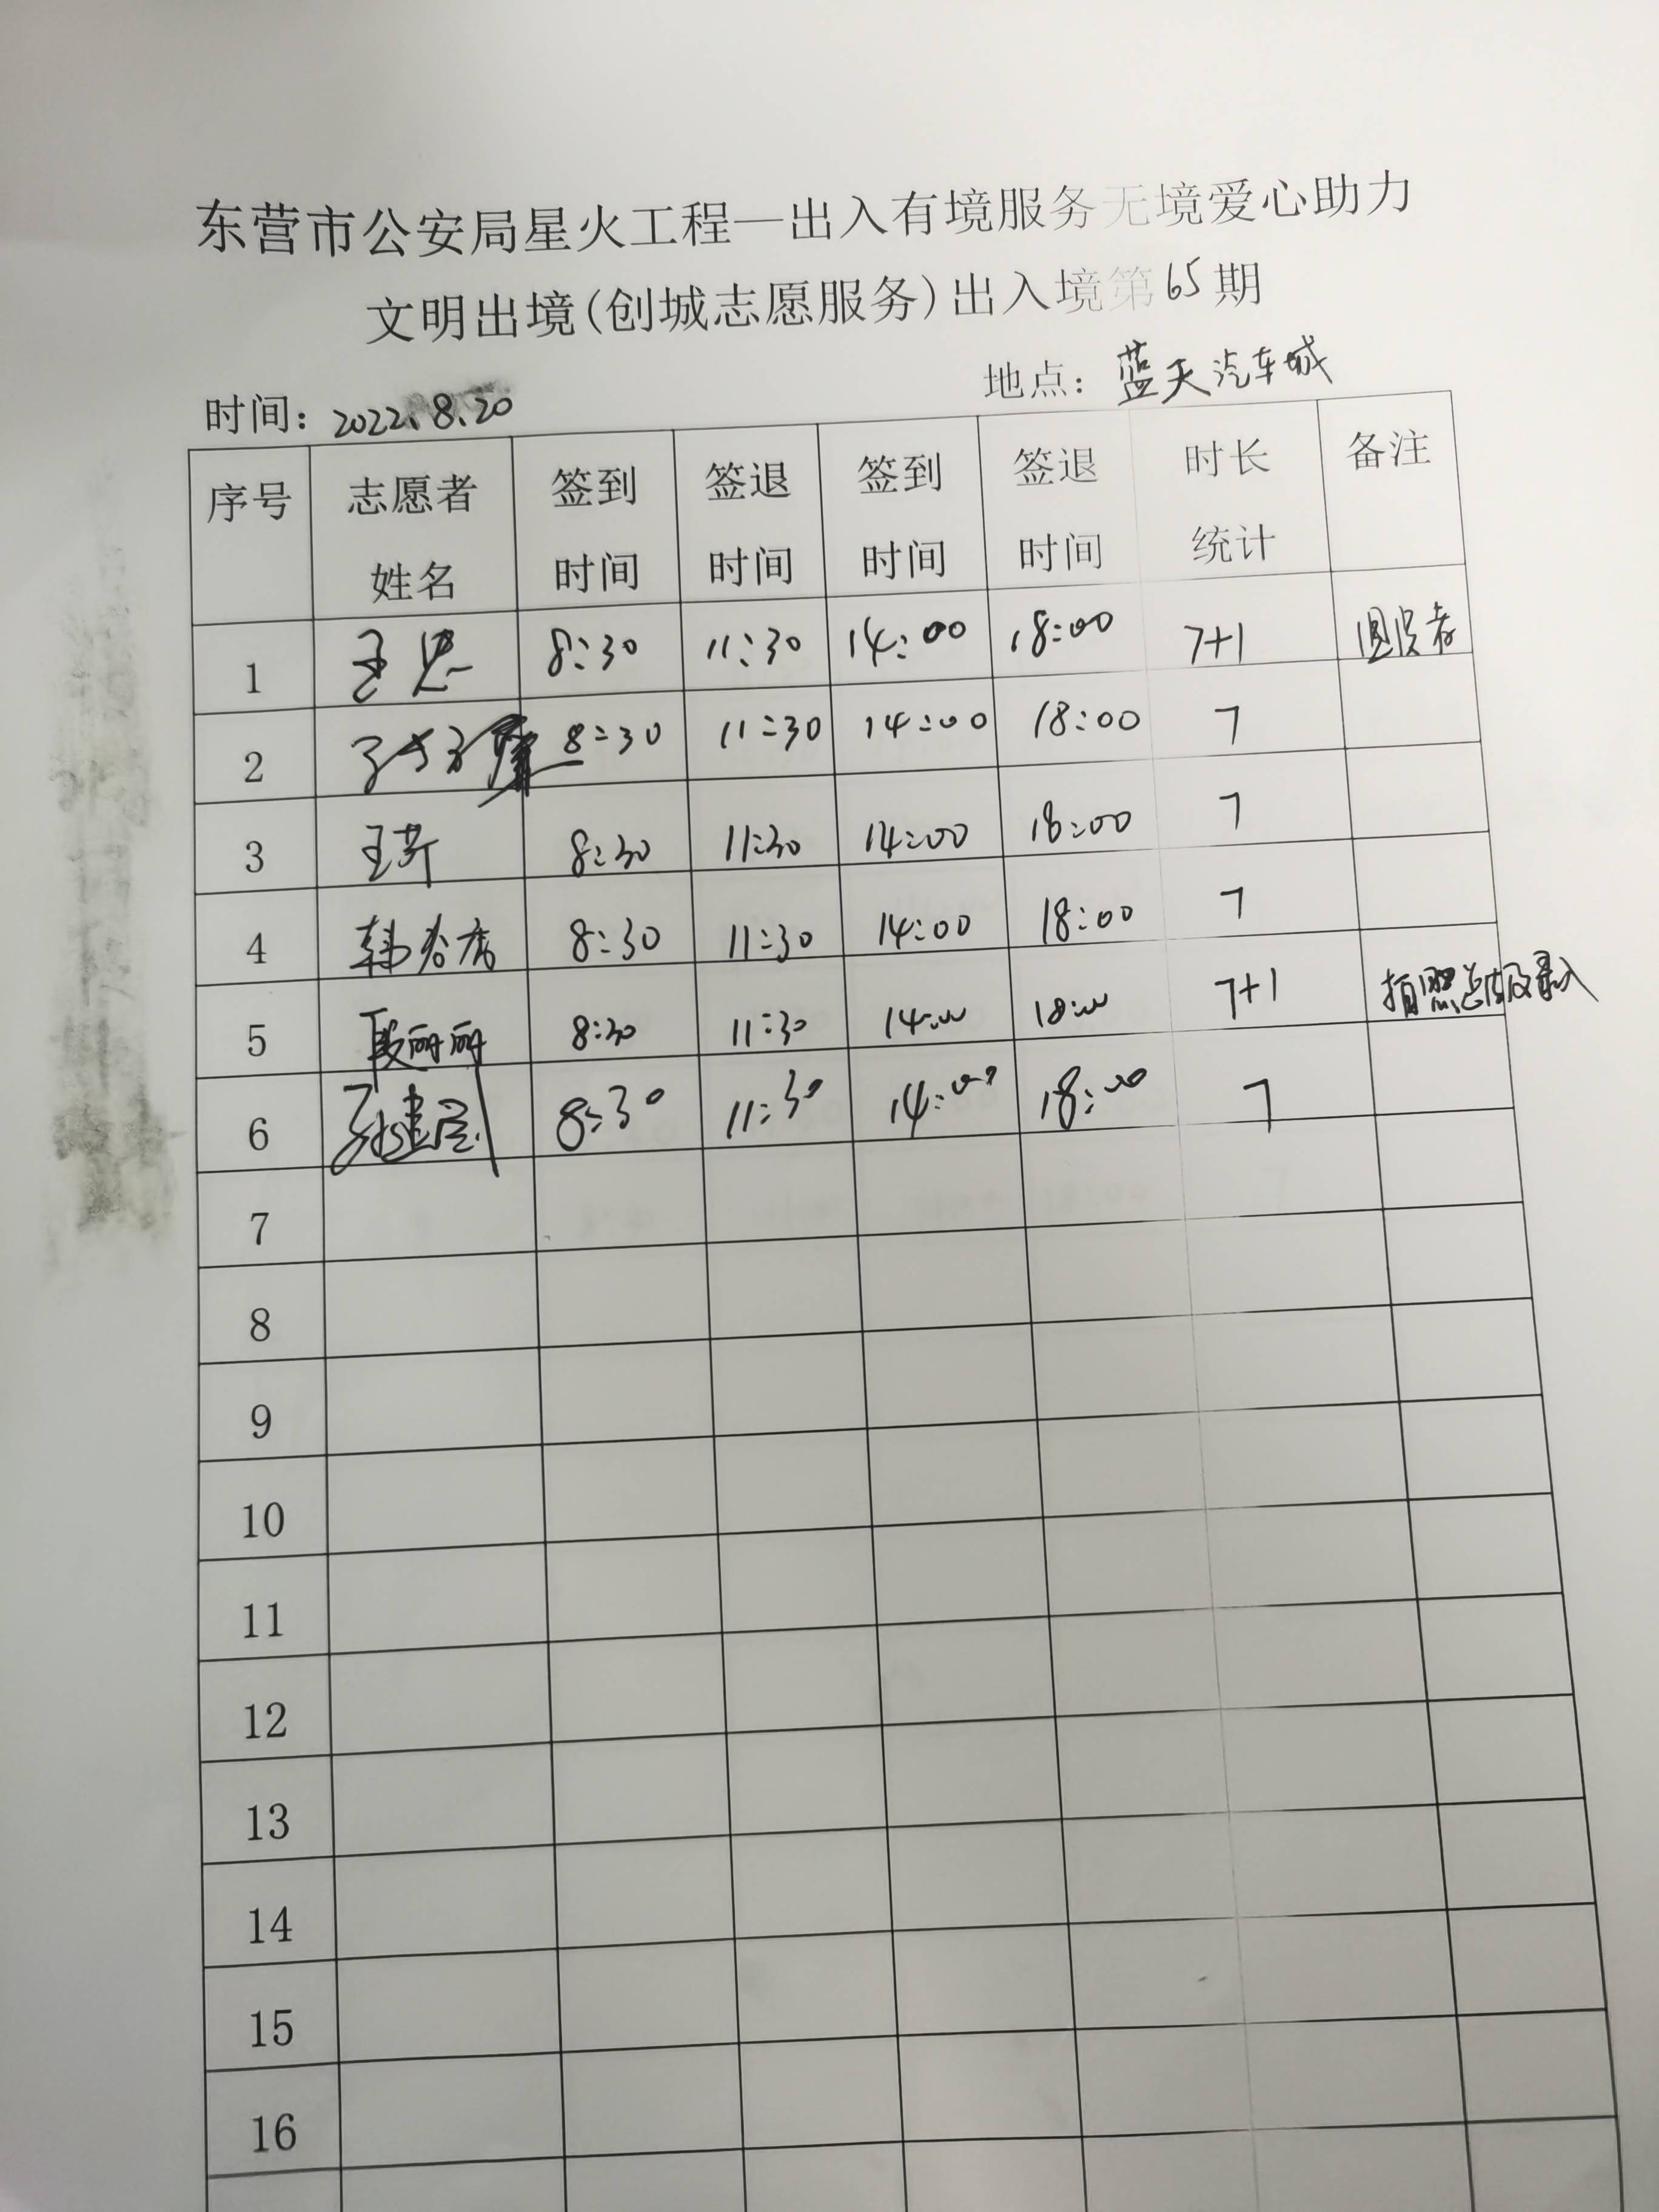 东营市公安局星火工程—出入有境服务无境爱心助力
文明出境(创城志愿服务)出入境第65期
时间: 2022.8.20 地点: 蓝天汽车城
序号 志愿者姓名 签到时间 签退时间 签到时间 签退时间 时长统计 备注
1 8:30 11:30 14:00 18:00 7+1
2 8:30 11:30 14:00 18:00 7
3 8:30 11:30 14:00 18:00 7
4 韩 8:30 11:30 14:00 18:00 7
5 段丽丽 8:30 11:30 14:00 18:00 7+1 拍照总结及录入
6 8:30 11:30 14:00 18:00 7
7
8
9
10
11
12
13
14
15
16